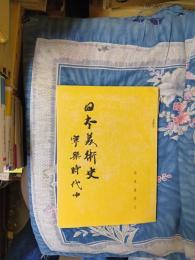 日本美術史
寧樂時代中